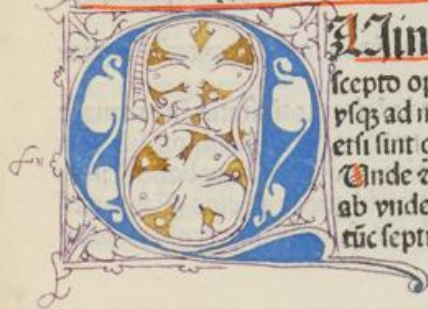 QUin
scepto op
vsqȝ ad n
etsi sunt q
Unde
ab vnde
tūc septi